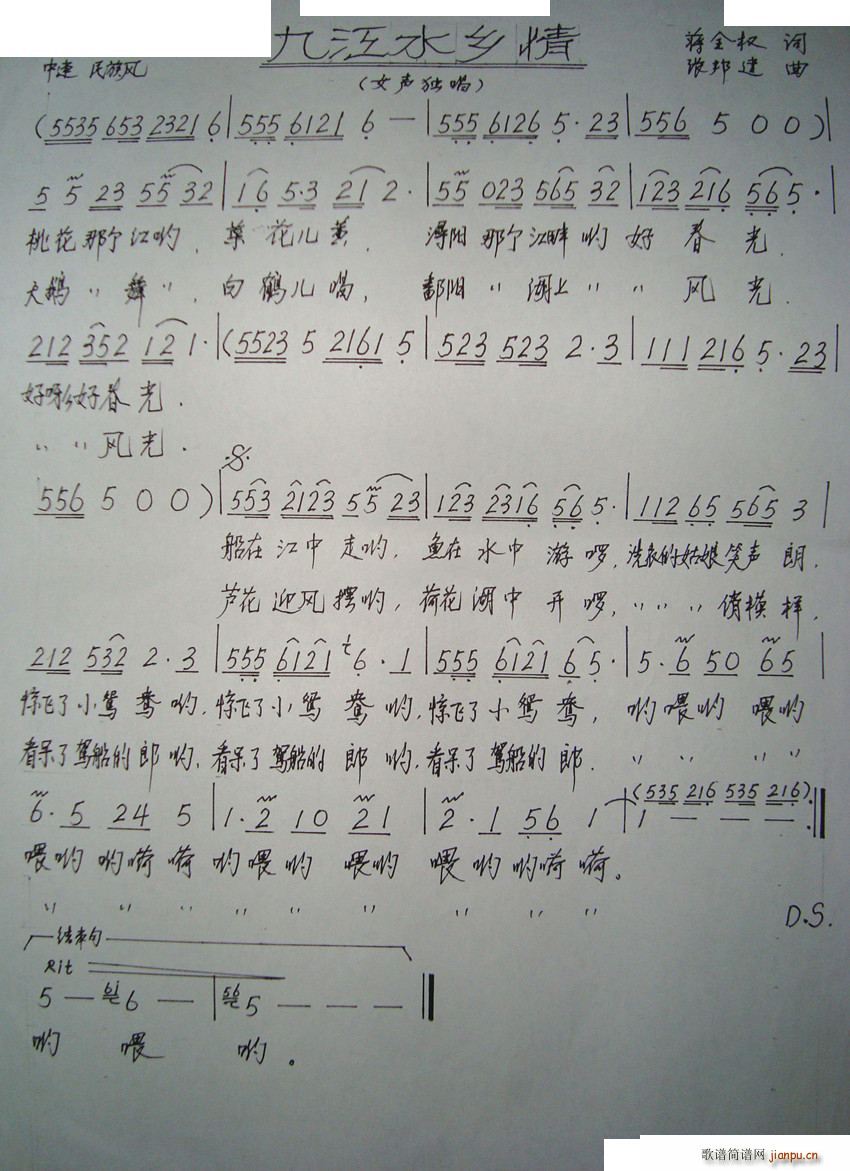 九江水乡情
中速 民族风
(女声独唱)
蒋全权 词
张邦建 曲
(5535 653 2321 6 | 555 6121 6 — | 555 6126 5· 23 | 556 5 0 0 ) |
5 5 23 55 32 | 16 5·3 21 2· | 55 023 565 32 | 123 216 565· |
桃花那个江哟，草花儿黄， 浔阳那个江畔哟好春光．
天鹅〃舞〃，白鹤儿唱， 鄱阳〃湖上〃〃风光．
212 352 12 1· | (5523 5 2161 5 | 523 523 2·3 | 111 216 5·23 |
好呀么好春光．
〃 〃 风光．
556 5 0 0 ) | 553 2123 55 23 | 123 2316 56 5· | 112 65 565 3 |
船在江中走哟，鱼在水中游啰，洗衣的姑娘笑声朗，
芦花迎风摆哟，荷花湖中开啰，〃〃〃俏模样，
212 532 2·3 | 555 6121 6·1 | 555 6121 6 5· | 5·6 50 65 |
惊飞了小鸳鸯哟，惊飞了小鸳鸯哟，惊飞了小鸳鸯，哟喂哟喂哟
看呆了驾船的郎哟，看呆了驾船的郎哟，看呆了驾船的郎．〃〃〃〃
6·5 24 5 | 1·2 10 21 | 2·1 56 1 | 1 — — — :||
(535 216 535 216)
喂哟哟嗬嗬哟喂哟喂哟喂哟哟嗬嗬。
〃 〃 〃 〃 〃 〃 〃 〃 〃
D.S.
结束句
Rit
5 — 6 — | 5 — — — ||
哟 喂 哟。
歌谱简谱网 jianpu.cn